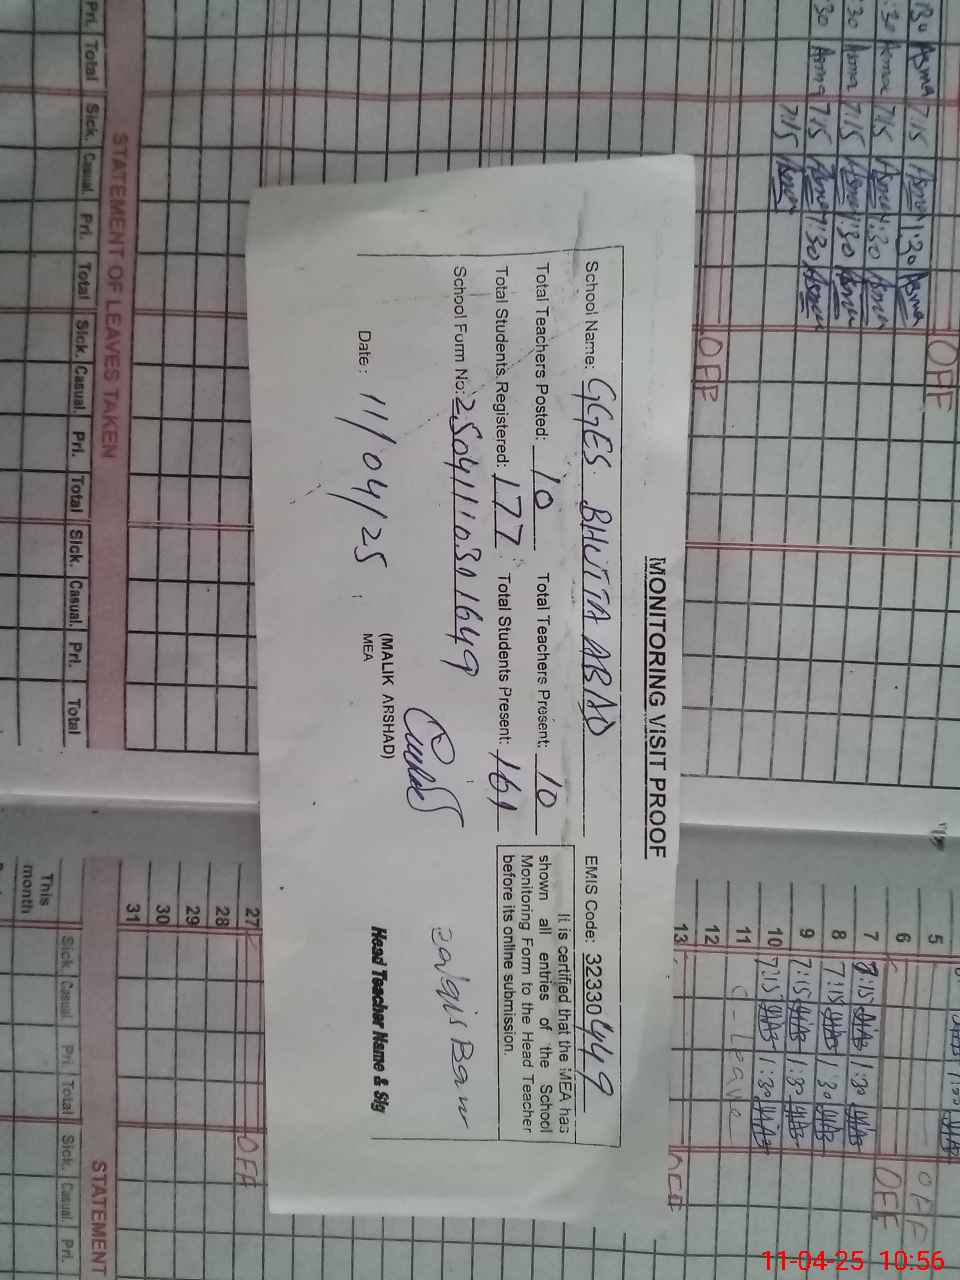 MONITORING VISIT PROOF
School Name: GGES BHUTTA ABAD EMIS Code: 32330449
Total Teachers Posted: 10 Total Teachers Present: 10
Total Students Registered: 177 Total Students Present: 161
School Form No: 250411031649
It is certified that the MEA has
shown all entries of the School
Monitoring Form to the Head Teacher
before its online submission.
Date: 11/04/25
(MALIK ARSHAD)
MEA
Head Teacher Name & Sig
OFF
OFF
7:15 Asma 1:30 Asma
7:15 Asma 1:30 Asma
7:15 Asma 1:30 Asma
7:15 Asma 1:30 Asma
7:15 Asma
Pri. Total Sick. Casual. Pri. Total Sick. Casual. Pri. Total Sick. Casual. Pri. Total
STATEMENT OF LEAVES TAKEN
5 OFF
6 OFF
7 7:15 1:30
8 7:15 1:30
9 7:15 1:30
10 7:15 1:30
11 C-Leave
12
13
27 OFF
28
29
30
31
STATEMENT
Sick. Casual. Pri. Total Sick. Casual. Pri.
This
month
11-04-25 10:56